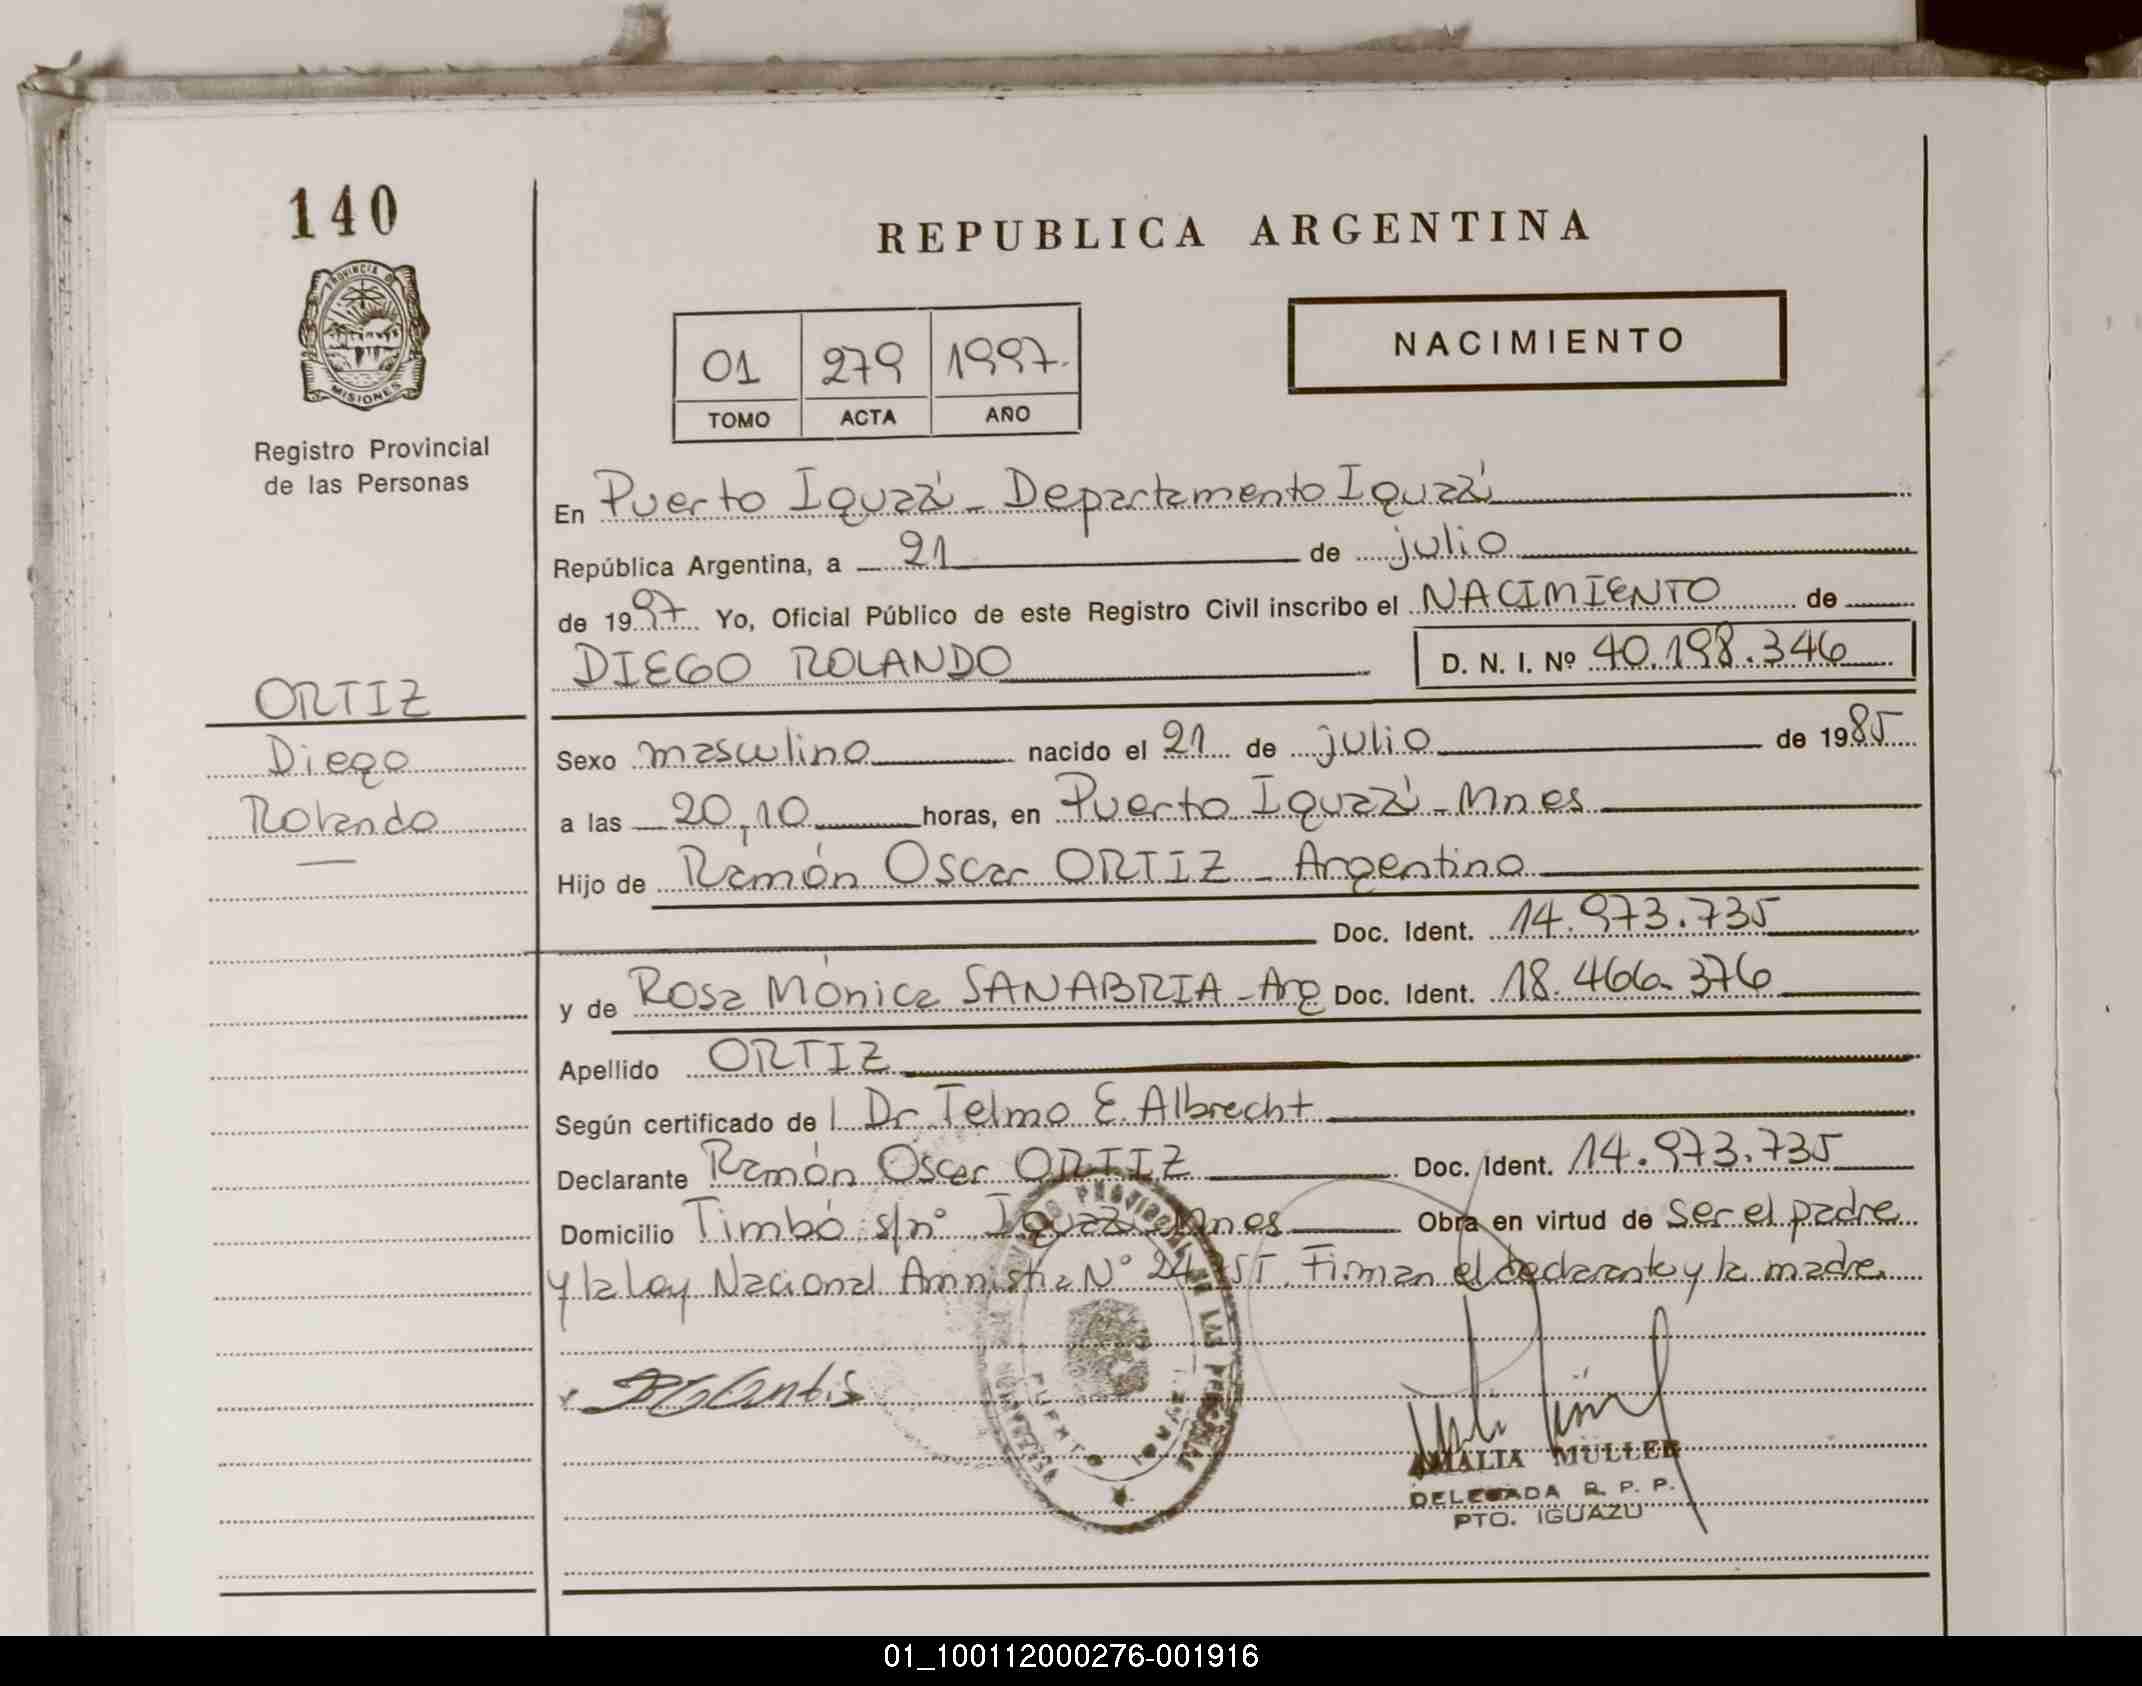 140
REPUBLICA ARGENTINA
PROVINCIA DE
MISIONES
Registro Provincial
de las Personas
NACIMIENTO
01 279 1997.
TOMO ACTA AÑO
En Puerto Iguazú - Departamento Iguazú
República Argentina, a 21 de julio
de 1997 Yo, Oficial Público de este Registro Civil inscribo el NACIMIENTO de
DIEGO ROLANDO D. N. I. Nº 40.198.346
ORTIZ
Diego
Rolando
Sexo masculino nacido el 21 de julio de 1985
a las 20,10 horas, en Puerto Iguazú - Mnes
Hijo de Ramón Oscar ORTIZ - Argentino
Doc. Ident. 14.973.735
y de Rosa Mónica SANABRIA - Arg Doc. Ident. 18.466.376
Apellido ORTIZ
Según certificado de Dr Telmo E. Albrecht
Declarante Ramón Oscar ORTIZ Doc. Ident. 14.973.735
Domicilio Timbó s/nº Iguazú Mnes Obra en virtud de ser el padre
y la Ley Nacional Amnistia Nº Firman el declarante y la madre
AMALIA MULLER
DELEGADA R. P. P.
PTO. IGUAZU
01_100112000276-001916